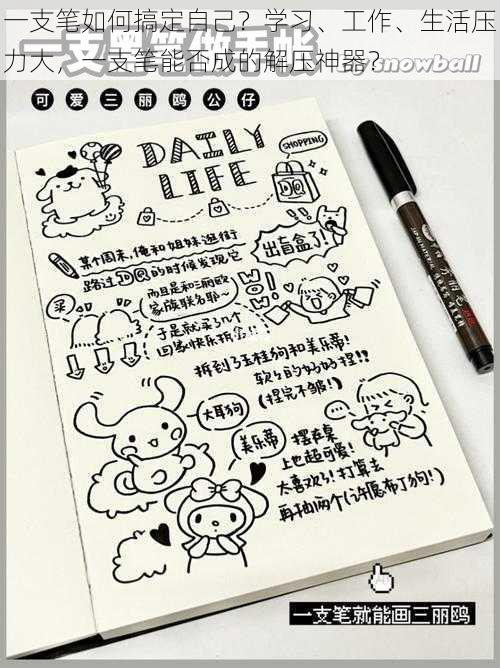 一支笔如何搞定自己？学习、工作、生活压
力大，一支笔能否成的解压神器？
一支黑笔做手帐
by:snowball
可爱三丽鸥公仔
DAILY
LIFE
SHOPPING
某个周末,俺和姐妹逛街
路过DQ的时候发现它
出盲盒了!
而且是和三丽鸥
家族联名耶~
买
于是就买了几个
回家快乐拆
拆到了玉桂狗和美乐蒂!
软乎的好好捏!!
(捏完不皱!)
大耳狗
美乐蒂
摆在桌
上也超可爱!
太喜欢了!打算去
再抽两个(许愿布丁狗!)
一支笔就能画三丽鸥